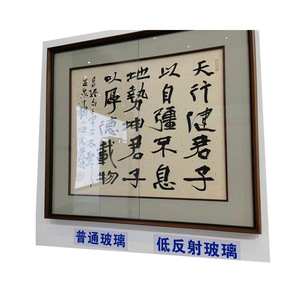 天行健君子
以自彊不息
地勢坤君子
以厚德載物
普通玻璃
低反射玻璃